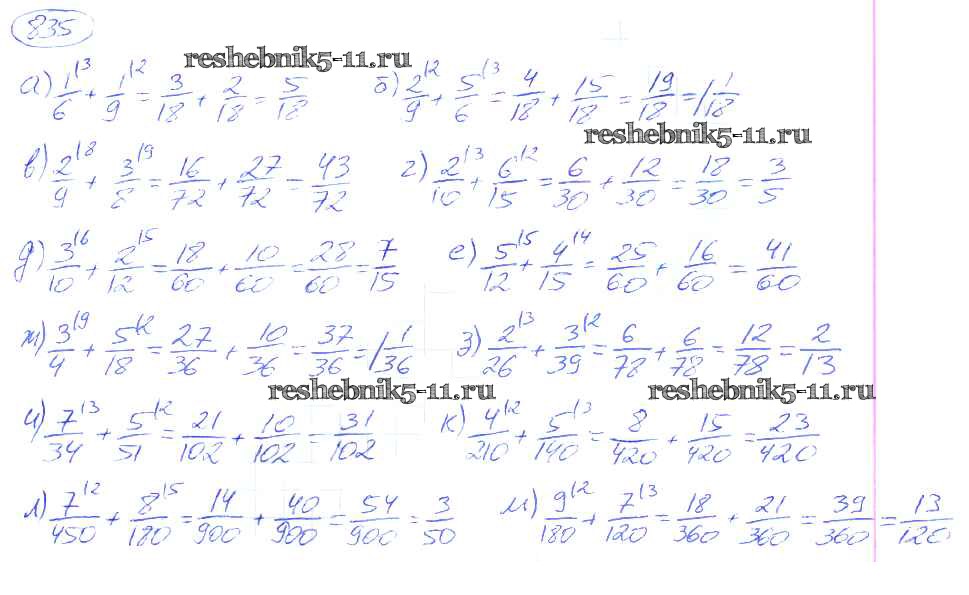 835
reshebnik5-11.ru
а) 1/6 |3 + 1/9 |2 = 3/18 + 2/18 = 5/18   б) 2/9 |2 + 5/6 |3 = 4/18 + 15/18 = 19/18 = 1 1/18
reshebnik5-11.ru
в) 2/9 |8 + 3/8 |9 = 16/72 + 27/72 = 43/72   г) 2/10 |3 + 6/15 |2 = 6/30 + 12/30 = 18/30 = 3/5
д) 3/10 |6 + 2/12 |5 = 18/60 + 10/60 = 28/60 = 7/15   е) 5/12 |5 + 4/15 |4 = 25/60 + 16/60 = 41/60
ж) 3/4 |9 + 5/18 |2 = 27/36 + 10/36 = 37/36 = 1 1/36   з) 2/26 |3 + 3/39 |2 = 6/78 + 6/78 = 12/78 = 2/13
reshebnik5-11.ru   reshebnik5-11.ru
и) 7/34 |3 + 5/51 |2 = 21/102 + 10/102 = 31/102   к) 4/210 |2 + 5/140 |3 = 8/420 + 15/420 = 23/420
л) 7/450 |2 + 8/180 |5 = 14/900 + 40/900 = 54/900 = 3/50   м) 9/180 |2 + 7/120 |3 = 18/360 + 21/360 = 39/360 = 13/120